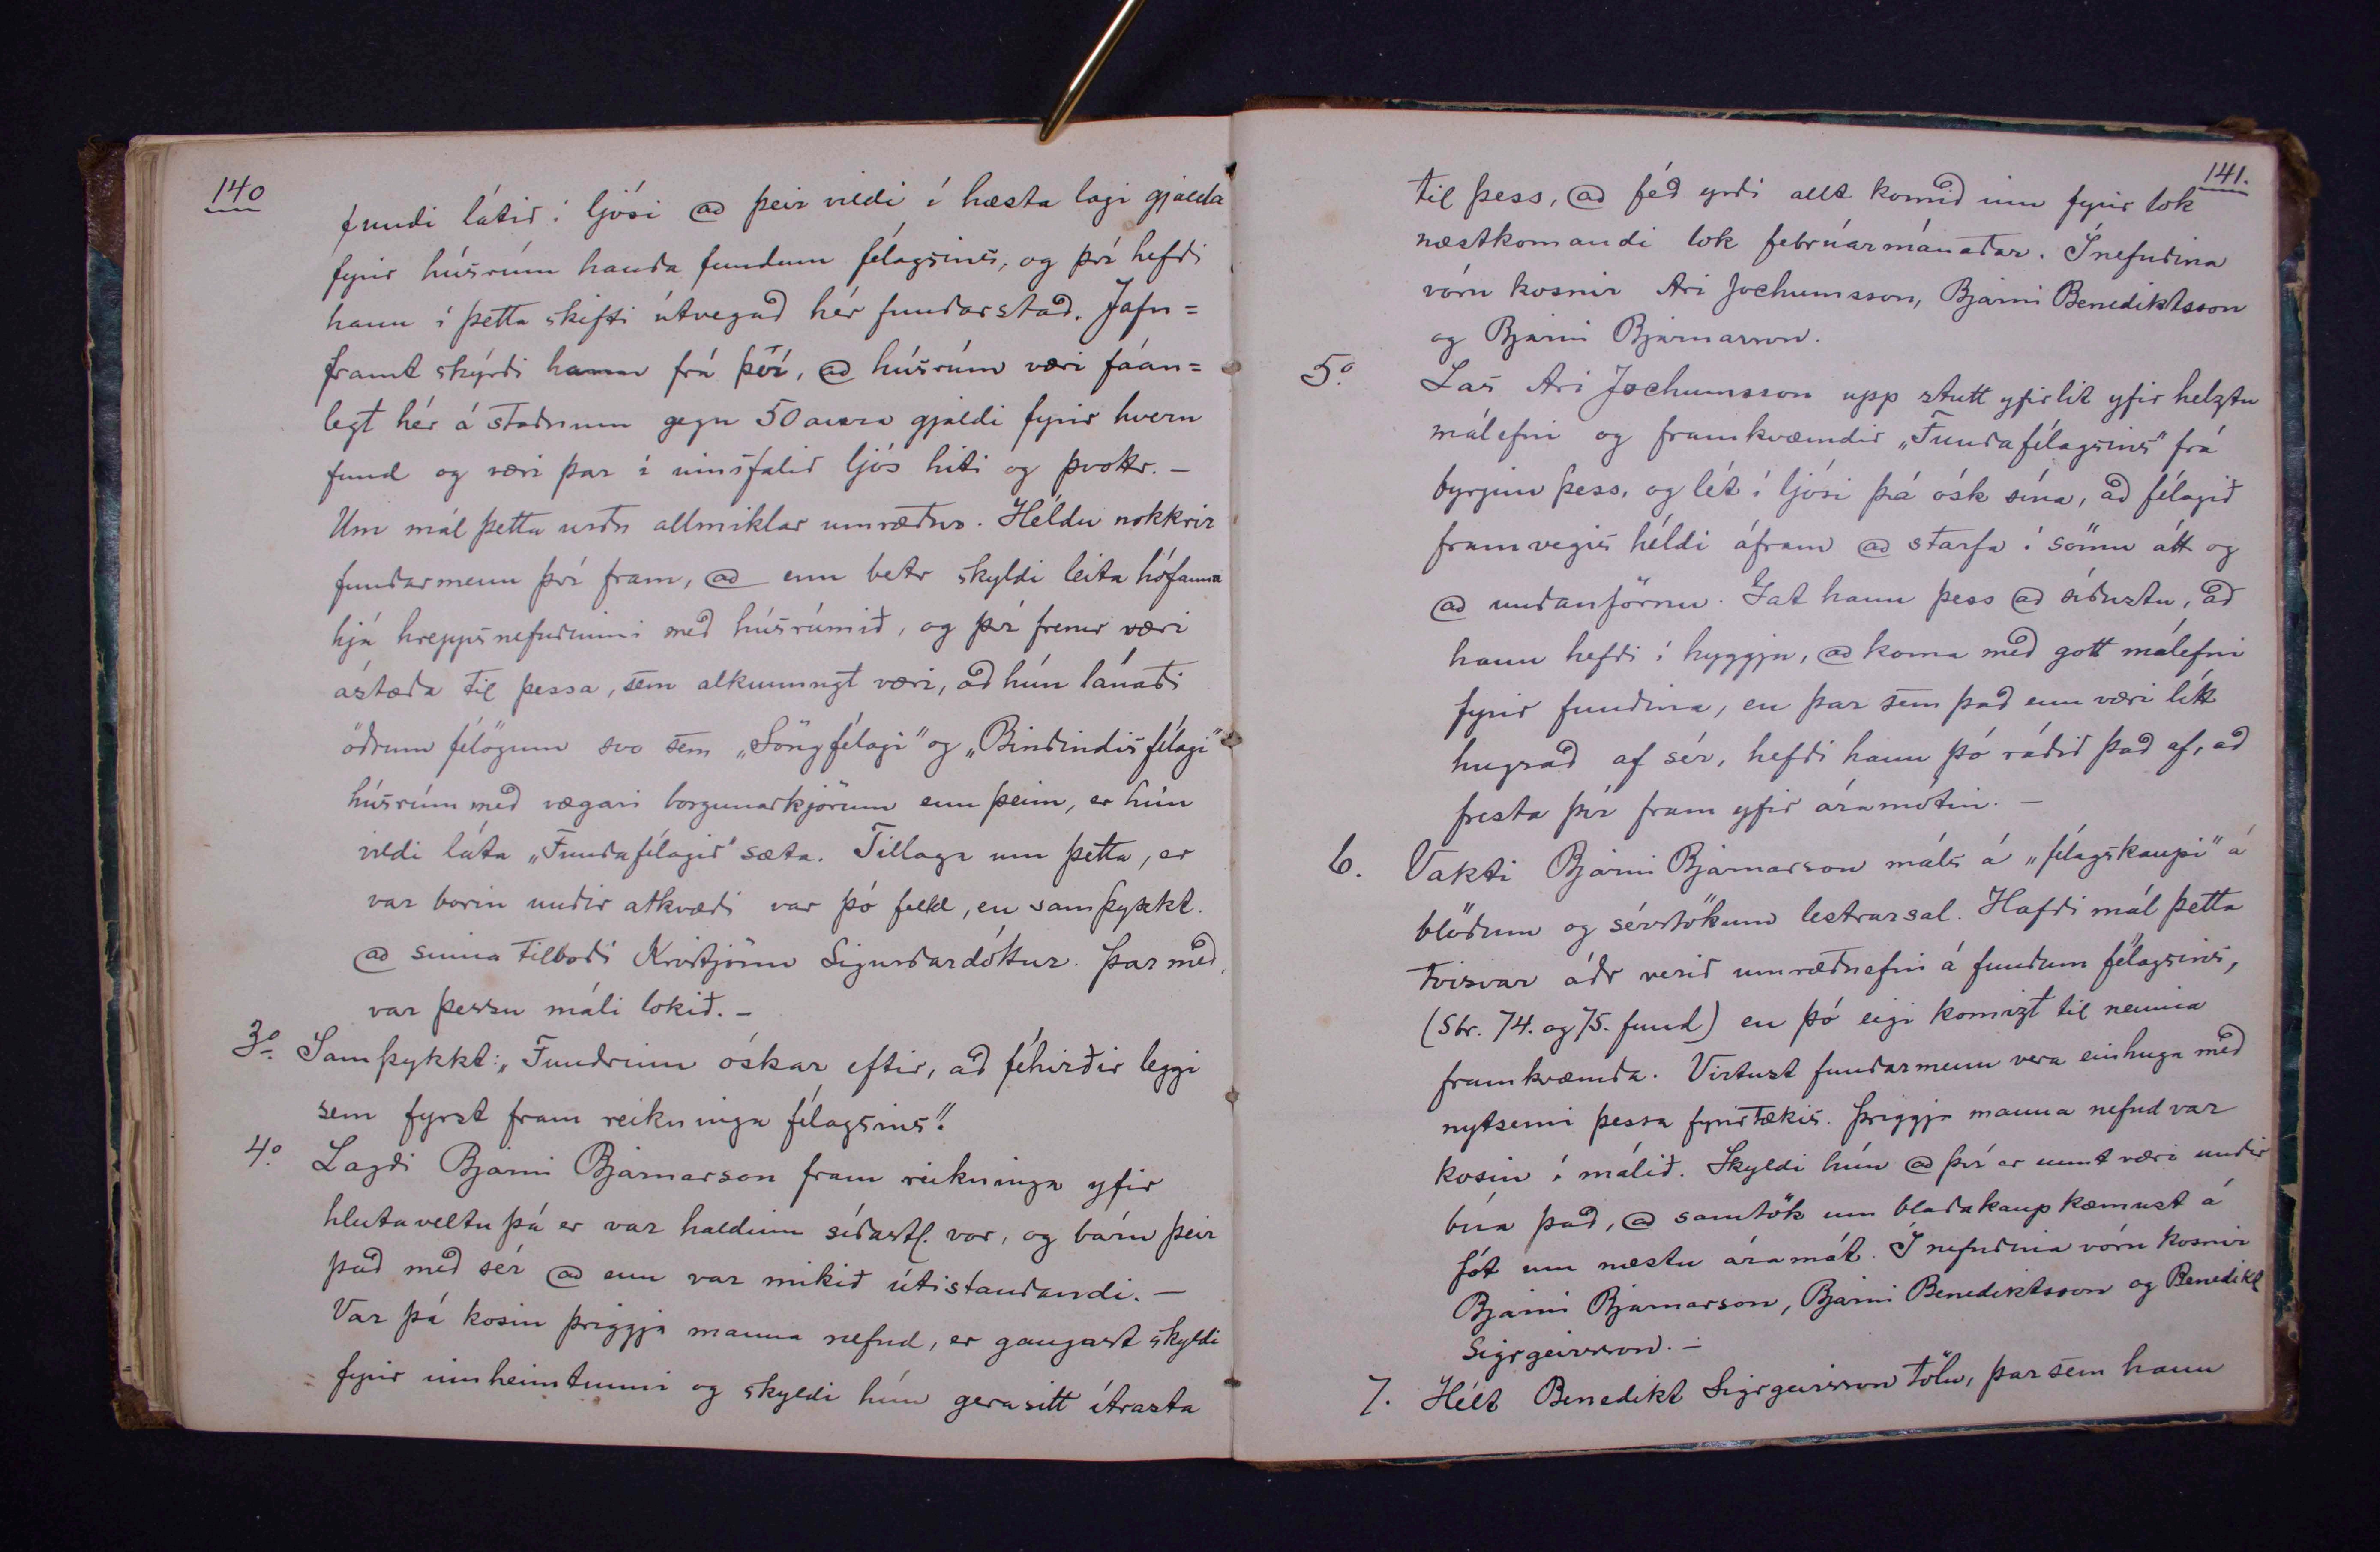 140
fundi látið í ljósi að þeir vildi í hæsta lagi gjalda
fyrir húsrúm handa fundum félagsins, og því hefði
hann í þetta skifti útvegað hér fundarstað. Jafn=
framt skýrði hann frá því, að húsrúm væri fáan=
legt hér á staðnum gegn 50 aura gjaldi fyrir hvern
fund og væri þar í innifalið ljós hiti og þvottr. –
Um mál þetta urðu allmiklar umræður. Héldu nokkrir
fundarmenn því fram, að enn betr skyldi leita hófanna
hjá hreppsnefndinni með húsrúmið, og því fremr væri
ástæða til þessa, sem alkunnugt væri, að hún lánaði
öðrum félögum svo sem „Söngfélagi“ og „Bindindisfélagi“
húsrúm með vægari borgunarkjörum enn þeim, er hún
vildi láta „Fundafélagið“ sæta. Tillaga um þetta, er
var borin undir atkvæði var þó felld, en samþykkt.
að sinna tilboði Kristjönu Sigurðardóttur. Þar með
var þessu máli lokið. –
3º. Samþykkt: „Fundrinn óskar eftir, að féhirðir leggi
sem fyrst fram reikninga félagsins“.
4º. Lagði Bjarni Bjarnarson fram reikninga yfir
hlutaveltu þá er var haldinn síðastl. vor, og báru þeir
það með sér að enn var mikið útistandandi. –
Var þá kosin þriggja manna nefnd, er gangast skyldi
fyrir innheimtunni og skyldi hún gera sitt ítrasta
141.
til þess, að féð yrði allt komið inn fyrir lok
næstkomandi lok febrúarmánaðar. Í nefndina
vóru kosnir Ari Jochumsson, Bjarni Benediktsson
og Bjarni Bjarnarson.
5º. Las Ari Jochumsson upp stutt yfirlit yfir helztu
málefni og framkvæmdir „Fundafélagsins“ frá
byrjun þess, og lét í ljósi þá ósk sína, að félagið
framvegis héldi áfram að starfa í sömu átt og
að undanförnu. Gat hann þess að síðustu, að
hann hefði í hyggju, að koma með gott málefni
fyrir fundina, en þar sem það enn væri lítt
hugsað af sér, hefði hann þó ráðið það af, að
fresta því fram yfir áramótin. –
6. Vakti Bjarni Bjarnarson máls á „félagskaupi“ á
blöðum og sérstökum lestrarsal. Hafði mál þetta
tvisvar áðr verið umræðuefni á fundum félagsins,
(Sbr. 74. og 75. fund) en þó eigi komizt til neinna
framkvæmda. Virtust fundarmenn vera einhuga með
nytsemi þessa fyrirtækis. Þriggja manna nefnd var
kosin í málið. Skyldi hún að því er unnt væri undir
búa það, að samtök um blaðakaup kæmust á
fót um næstu áramót. Í nefndina vóru kosnir
Bjarni Bjarnarson, Bjarni Benediktsson og Benedikt
Sigrgeirsson. –
7. Hélt Benedikt Sigrgeirsson tölu, þar sem hann